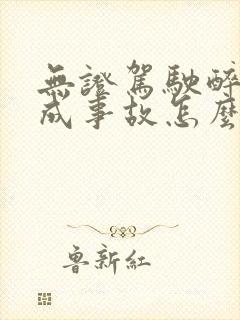 無證駕駛醉
成事故怎麼
魯新紅